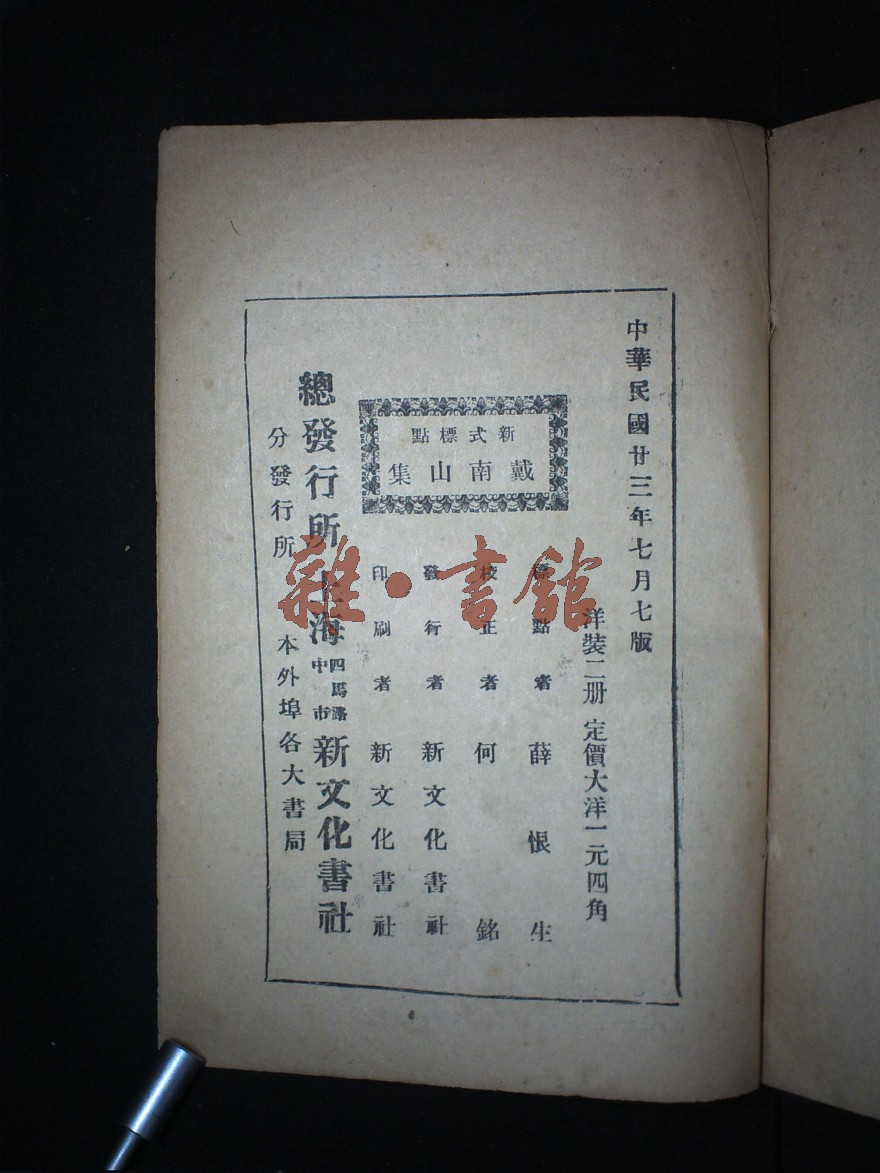 中華民國廿三年七月七版
洋裝二册 定價大洋一元四角
新式標點
戴南山集
標點者 薛恨生
校正者 何銘
發行者 新文化書社
印刷者 新文化書社
總發行所 上海四馬路中市 新文化書社
分發行所 本外埠各大書局
雜·書館